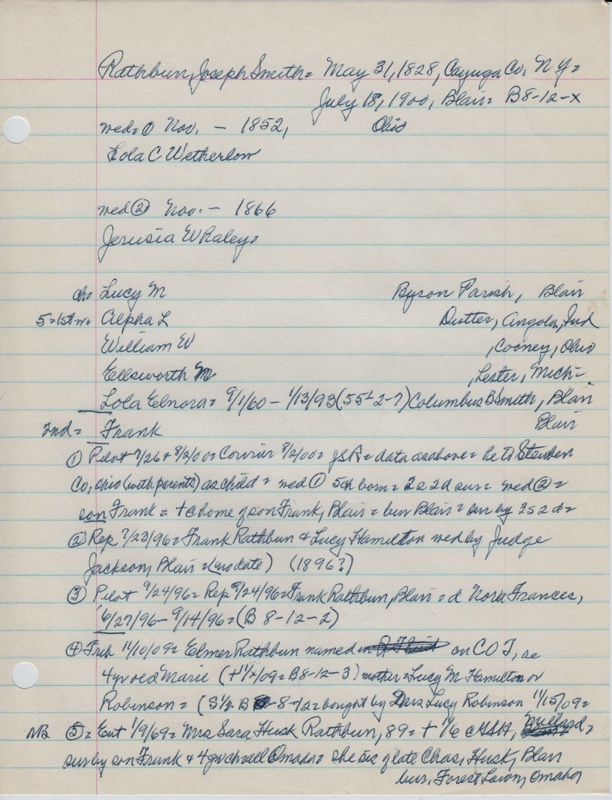 Rathbun, Joseph Smith = May 31, 1828, Cayuga Co. N Y =
July 18, 1900, Blair = B8-12-X
wed = ① Nov. - 1852, Ohio
Lola C Wetherlow
wed ② Nov. - 1866
Jerusia W Raleys
ch = Lucy M Byron Parish, Blair
5 = 1st w = Alpha L Dutter, Angola, Ind
William W , Cooney, Ohio
Ellsworth M , Lester, Mich =
Lola Elnora = 9/1/60 - 1/13/93 (55½-2-7) Columbus B Smith, Blair
2nd = Frank Blair
① Pilot 7/26 + 8/2/00 = Courier 8/2/00 = JSR = data as above = he to Steuben
Co, Ohio (with parents) as child = wed ① 5 ch born = 2 s 2 d sur = wed ② =
son Frank = + c home of son Frank, Blair = bur Blair = sur by 2 s 2 d =
② Rep 7/23/96 = Frank Rathbun & Lucy Hamilton wed by Judge
Jackson, Blair = (no date) (1896?)
③ Pilot 9/24/96 = Rep 9/24/96 = Frank Rathbun, Blair = d Nora Frances,
6/27/96 - 9/14/96 = (B 8-12-2)
④ Trib 11/10/09 = Elmer Rathbun named in on COT, re
4 yr old Marie (+ 11/2/09 = B8-12-3) mother = Lucy M. Hamilton or
Robinson = (S½ B 8-12 = bought by Mrs Lucy Robinson 11/15/09 =
NB ⑤ = Ent 1/9/69 = Mrs Sara Husk Rathbun, 89 = + 1/6 c Millard =
sur by son Frank & 4 gr ch all Omaha = she sis of late Chas, Husk, Blair
bur, Forest Lawn, Omaha